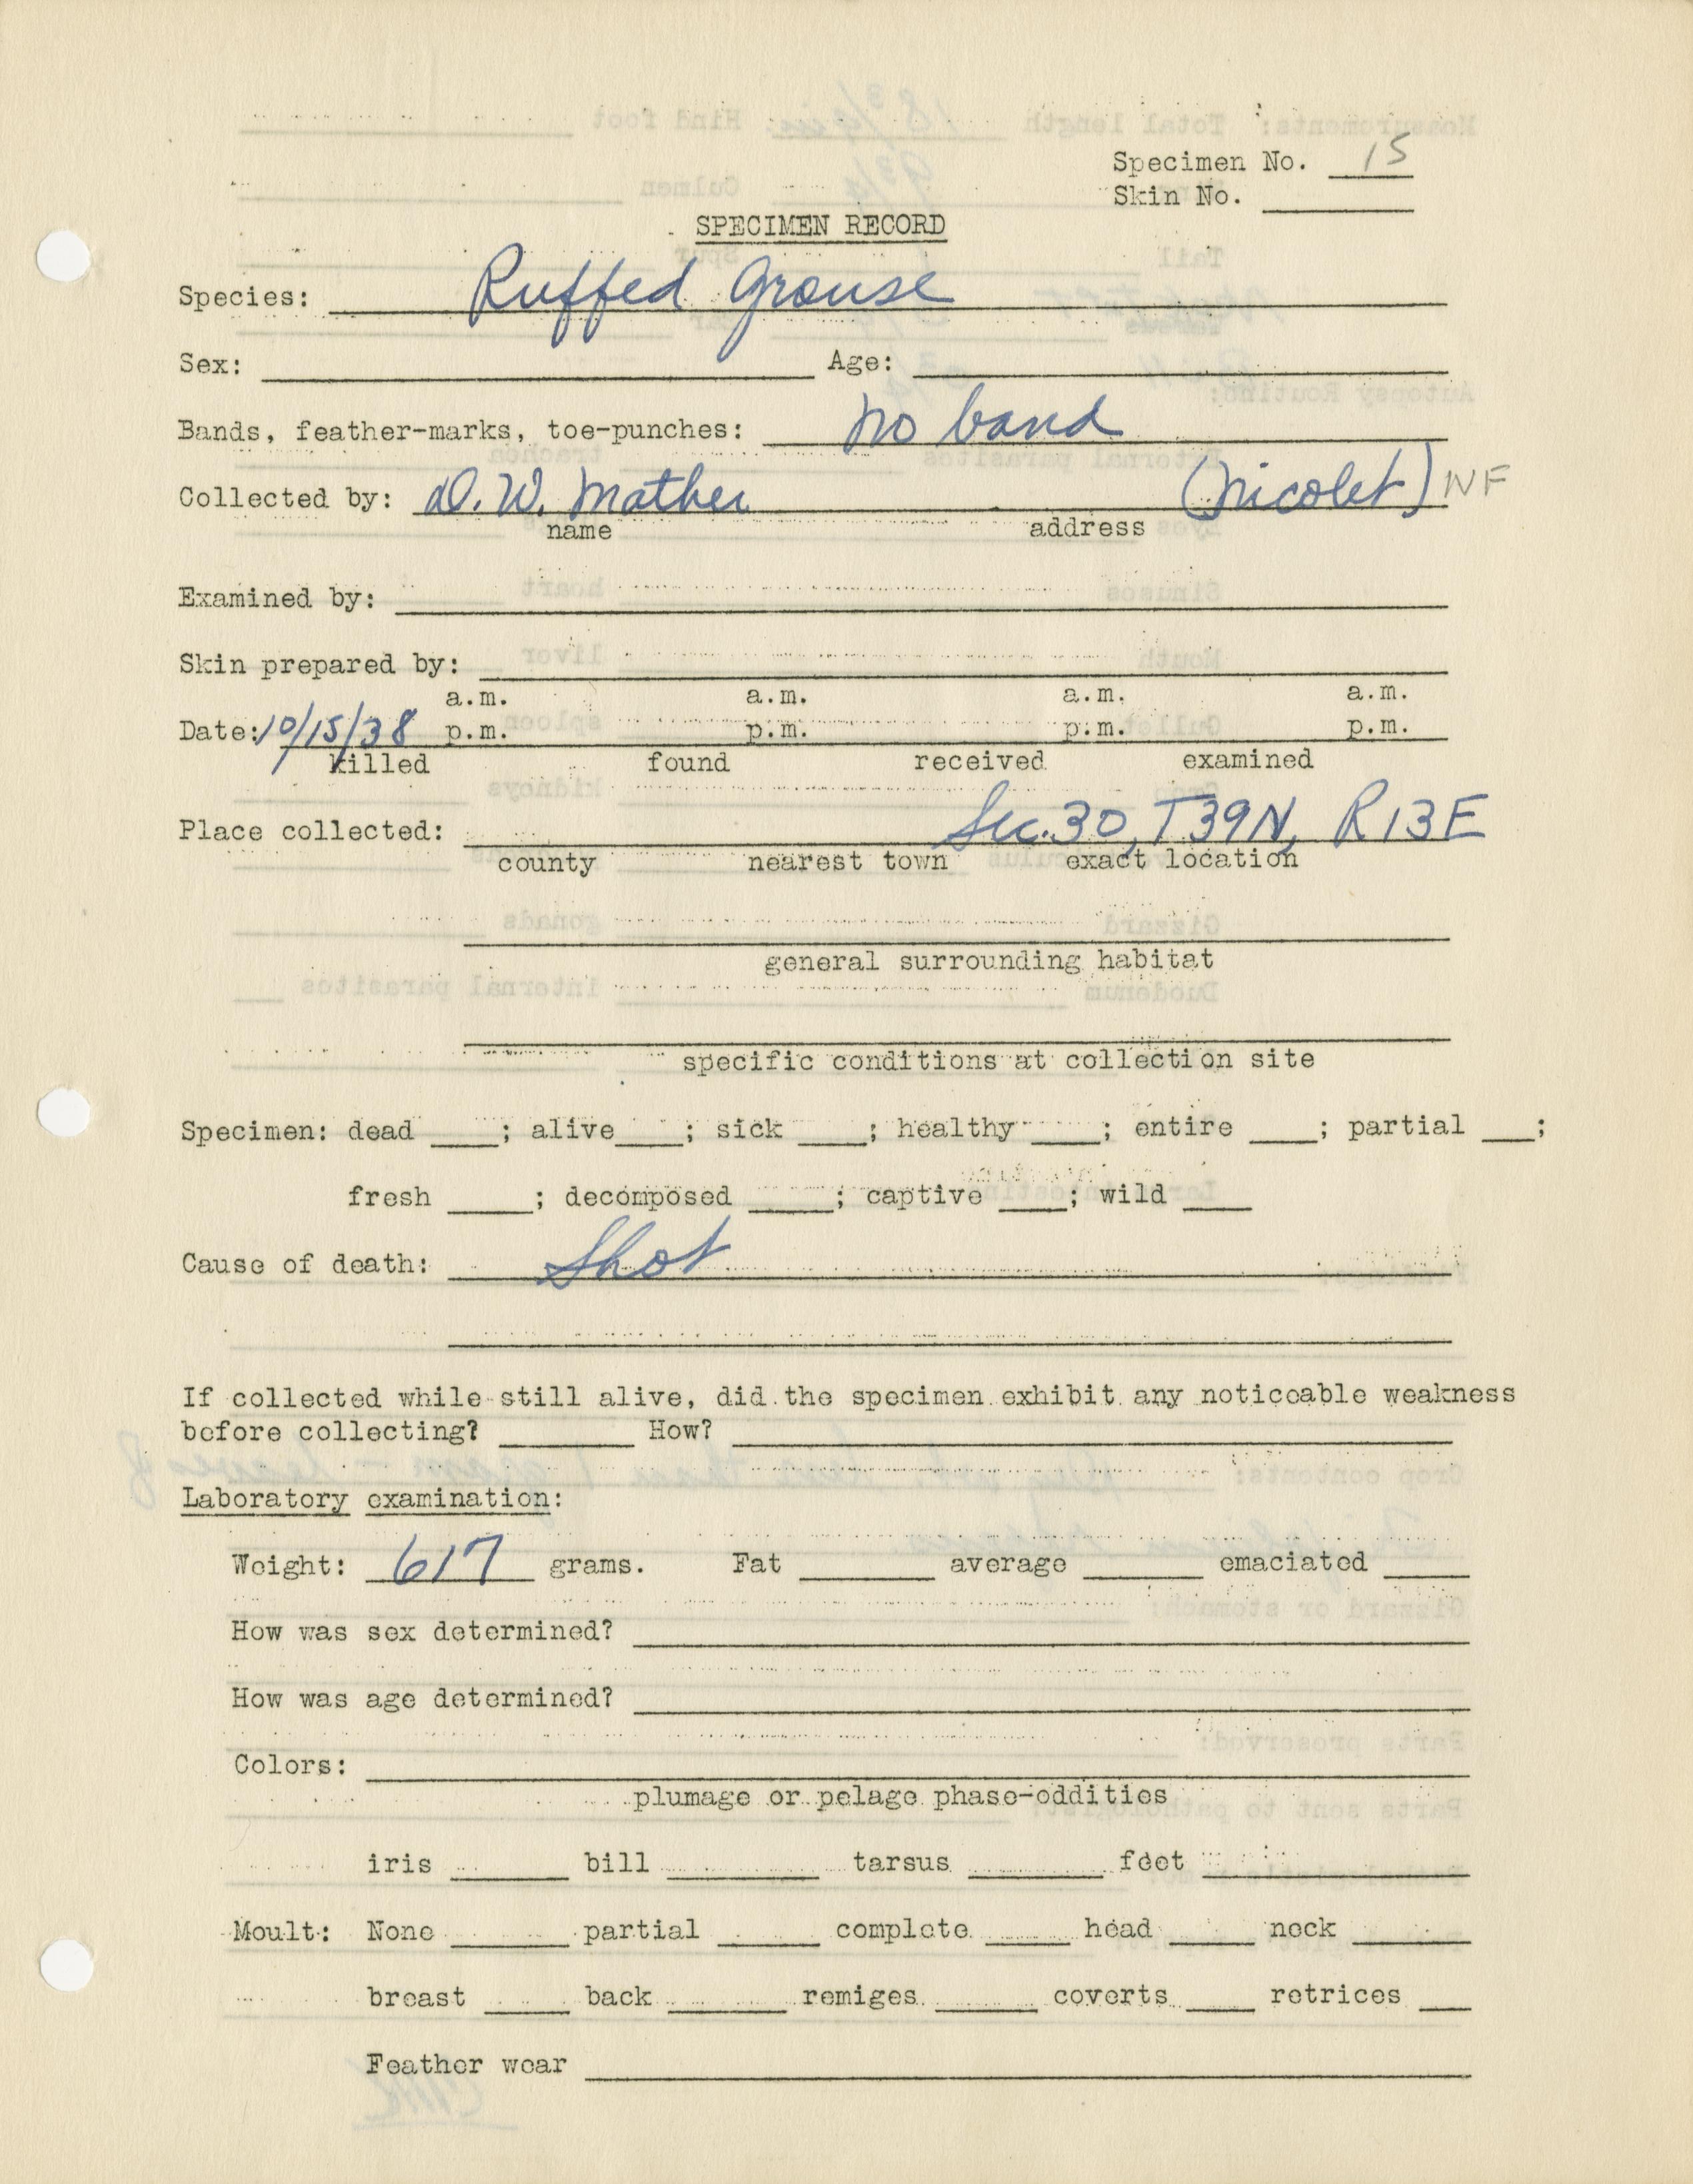 Specimen No. 15
Skin No. ____
SPECIMEN RECORD
Species: Ruffed Grouse
Sex: ____ Age: ____
Bands, feather-marks, toe-punches: no band
Collected by: D. W. Mather (Nicolet) NF
name address
Examined by: ____
Skin prepared by: ____
a.m. a.m. a.m. a.m.
Date: 10/15/38 p.m. p.m. p.m. p.m.
killed found received examined
Place collected: Sec. 30, T39N, R13E
county nearest town exact location
general surrounding habitat
specific conditions at collection site
Specimen: dead ____; alive____; sick ____; healthy ____; entire ____; partial ____;
fresh ____; decomposed ____; captive ____; wild ____
Cause of death: Shot
If collected while still alive, did the specimen exhibit any noticeable weakness
before collecting? ____ How? ____
Laboratory examination:
Weight: 617 grams. Fat ____ average ____ emaciated ____
How was sex determined? ____
How was age determined? ____
Colors: ____
plumage or pelage phase-oddities
iris ____ bill ____ tarsus ____ feet ____
Moult: None ____ partial ____ complete ____ head ____ neck ____
breast ____ back ____ remiges ____ coverts ____ retrices ____
Feather wear ____